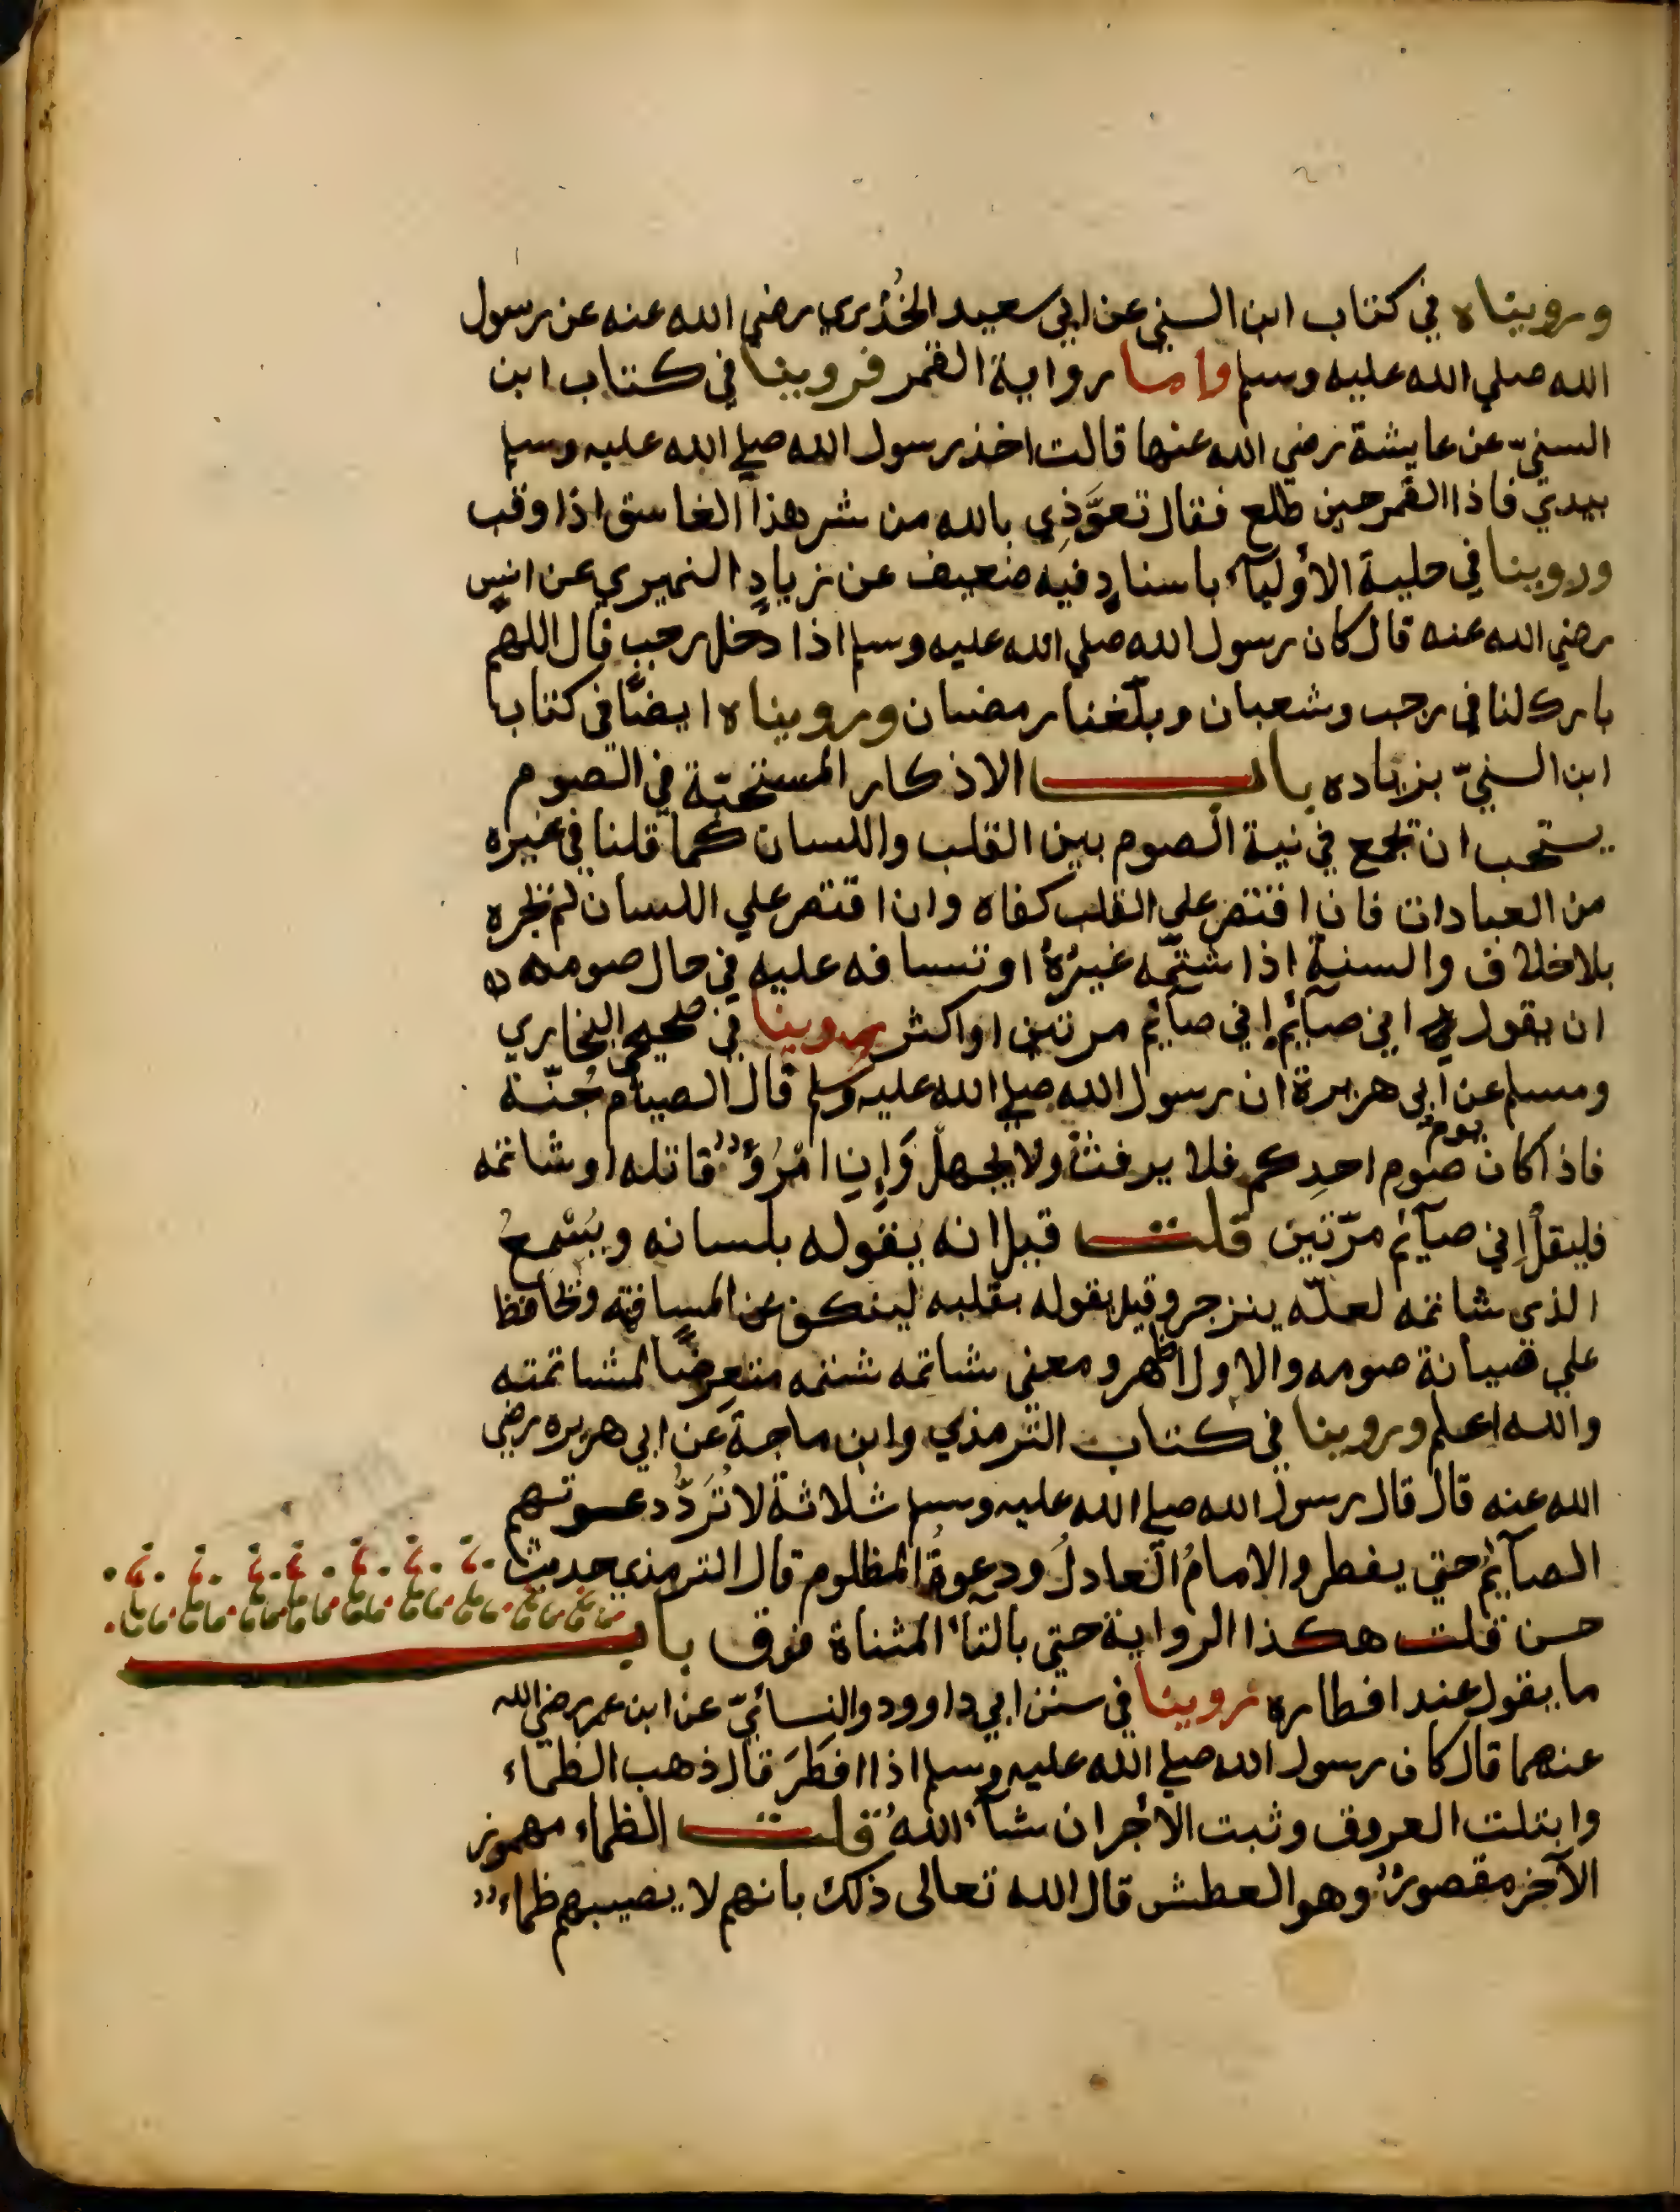 ورويناه في كتاب ابن السني عن ابي سعيد الخُدْري رضي الله عنه عن رسول
الله صلي الله عليه وسلم واما رواية القمر فروينا في كتاب ابن
السنيّ عن عايشة رضي الله عنها قالت اخذ رسول الله صلي الله عليه وسلم
بيدي فاذا القمر حين طلع فقال تعوَّذِي بالله من شر هذا الغاسق اذا وقب
وروينا في حلية الأوليآء باسنادٍ فيه ضعيف عن زيادٍ النميري عن انسٍ
رضي الله عنه قال كان رسول الله صلي الله عليه وسلم اذا دخل رجب قال اللهم
بارك لنا في رجب وشعبان وبلّغنا رمضان ورويناه ايضًا في كتاب
ابن السنيّ بزياده باب الاذكار المستحبّة في الصوم
يستحب ان تجمع في نية الصوم بين القلب واللسان كما قلنا في غيره
من العبادات فان اقتصر علي القلب كفاه وان اقتصر علي اللسان لم تجزه
بلا خلاف والسنة إذا شتمه غيرُهُ او تسافه عليه في حال صومه
ان يقول اني صآئم إني صآئم مرتين او اكثر روينا في صحيحي البخاري
ومسلم عن أبي هريرة ان رسول الله صلي الله عليه وسلم قال الصيام جُنّة
فاذا كان يوم صوم احدِكم فلا يرفث ولا يجهل وَإِنِ امْرُؤٌ قاتله او شاتمه
فليقلْ إِني صآئم مرّتين قلت قيل انه يقوله بلسانه ويُسْمِعُ
الذي شاتمه لعلّه ينزجر وقيل يقوله بقلبه لينكف عن المسافهة ويحافظ
علي صيانة صومه والاول اظهر ومعني شاتمه شتمه متعرضًا لمشاتمته
والله اعلم وروينا في كتاب الترمذي وابن ماجة عن ابي هريره رضي
الله عنه قال قال رسول الله صلي الله عليه وسلم ثلاثة لا تُرَدُّ دعوتهم
الصآئمُ حتي يفطر والامامُ العادلُ ودعوةُ المظلوم قال الترمذي حديث
حسن قلت هكذا الرواية حتي بالتاء المثناة فوق باب
ما يقول عند افطاره روينا في سنن ابي داوود والنسائيّ عن ابن عمر رضي الله
عنهما قال كان رسول الله صلي الله عليه وسلم اذا افطَرَ قال ذهب الظماء
وابتلت العروق وثبت الأجر ان شآء اللهُ قلت الظماء مهموز
الآخر مقصورٌ وهو العطش قال الله تعالى ذلك بانهم لا يصيبهم ظماء